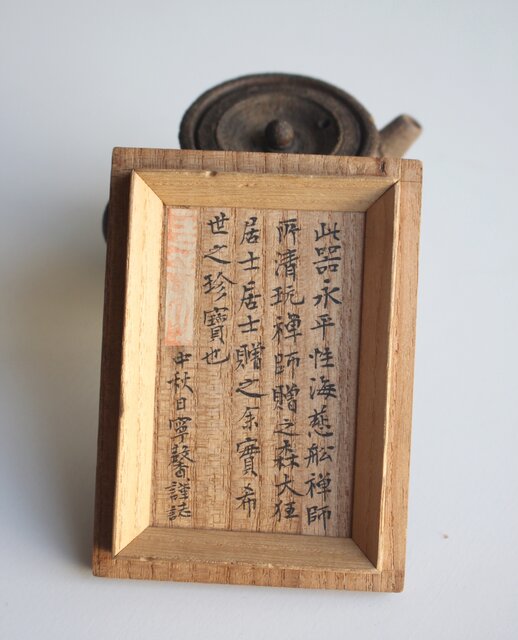 此器永平性海慈舩禅師
所清玩禅師贈之森大狂
居士居士贈之余實希
世之珍寶也
中秋日寧馨謹誌